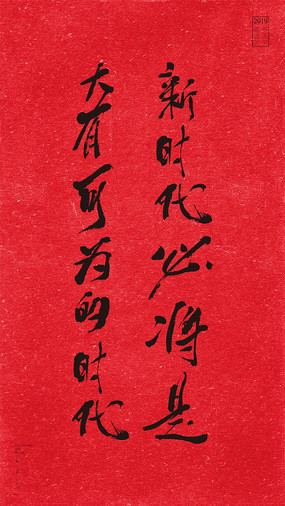 新时代必将是
大有可为的时代
2019